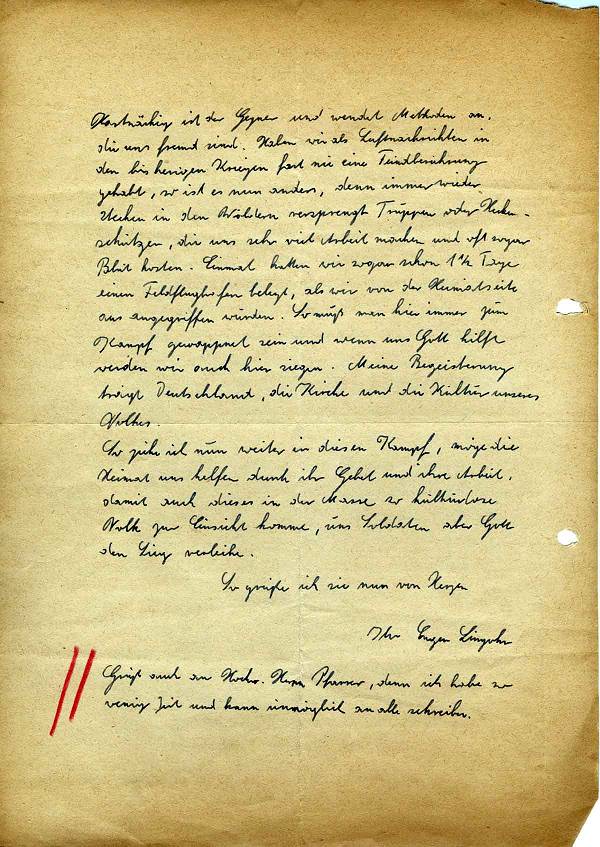 Hartnäckig ist der Gegner und wendet Methoden an,
die uns fremd sind. Haben wir als Luftnachrichten in
den bisherigen Kriegen fast nie eine Feindberührung
gehabt, so ist es nun anders, denn immer wieder
stecken in den Wäldern versprengte Truppen oder Hecken-
schützen, die uns sehr viel Arbeit machen und oft sogar
Blut kosten. Einmal hatten wir sogar schon 1½ Tage
einen Feldflughafen belegt, als wir von der Heimatseite
aus angegriffen wurden. So muß man hier immer zum
Kampf gewappnet sein und wenn uns Gott hilft
werden wir auch hier siegen. Meine Begeisterung
trägt Deutschland, die Kirche und die Kultur unseres
Volkes.
So ziehe ich nun weiter in diesen Kampf, möge die
Heimat uns helfen durch ihr Gebet und ihre Arbeit,
damit auch dieses in der Masse so kulturlose
Volk zur Einsicht komme, uns Soldaten aber Gott
den Sieg verleihe.
So grüße ich sie nun von Herzen
Ihr Eugen
Gruß auch an Hochw. Herrn Pfarrer, denn ich habe so
wenig Zeit und kann unmöglich an alle schreiben.